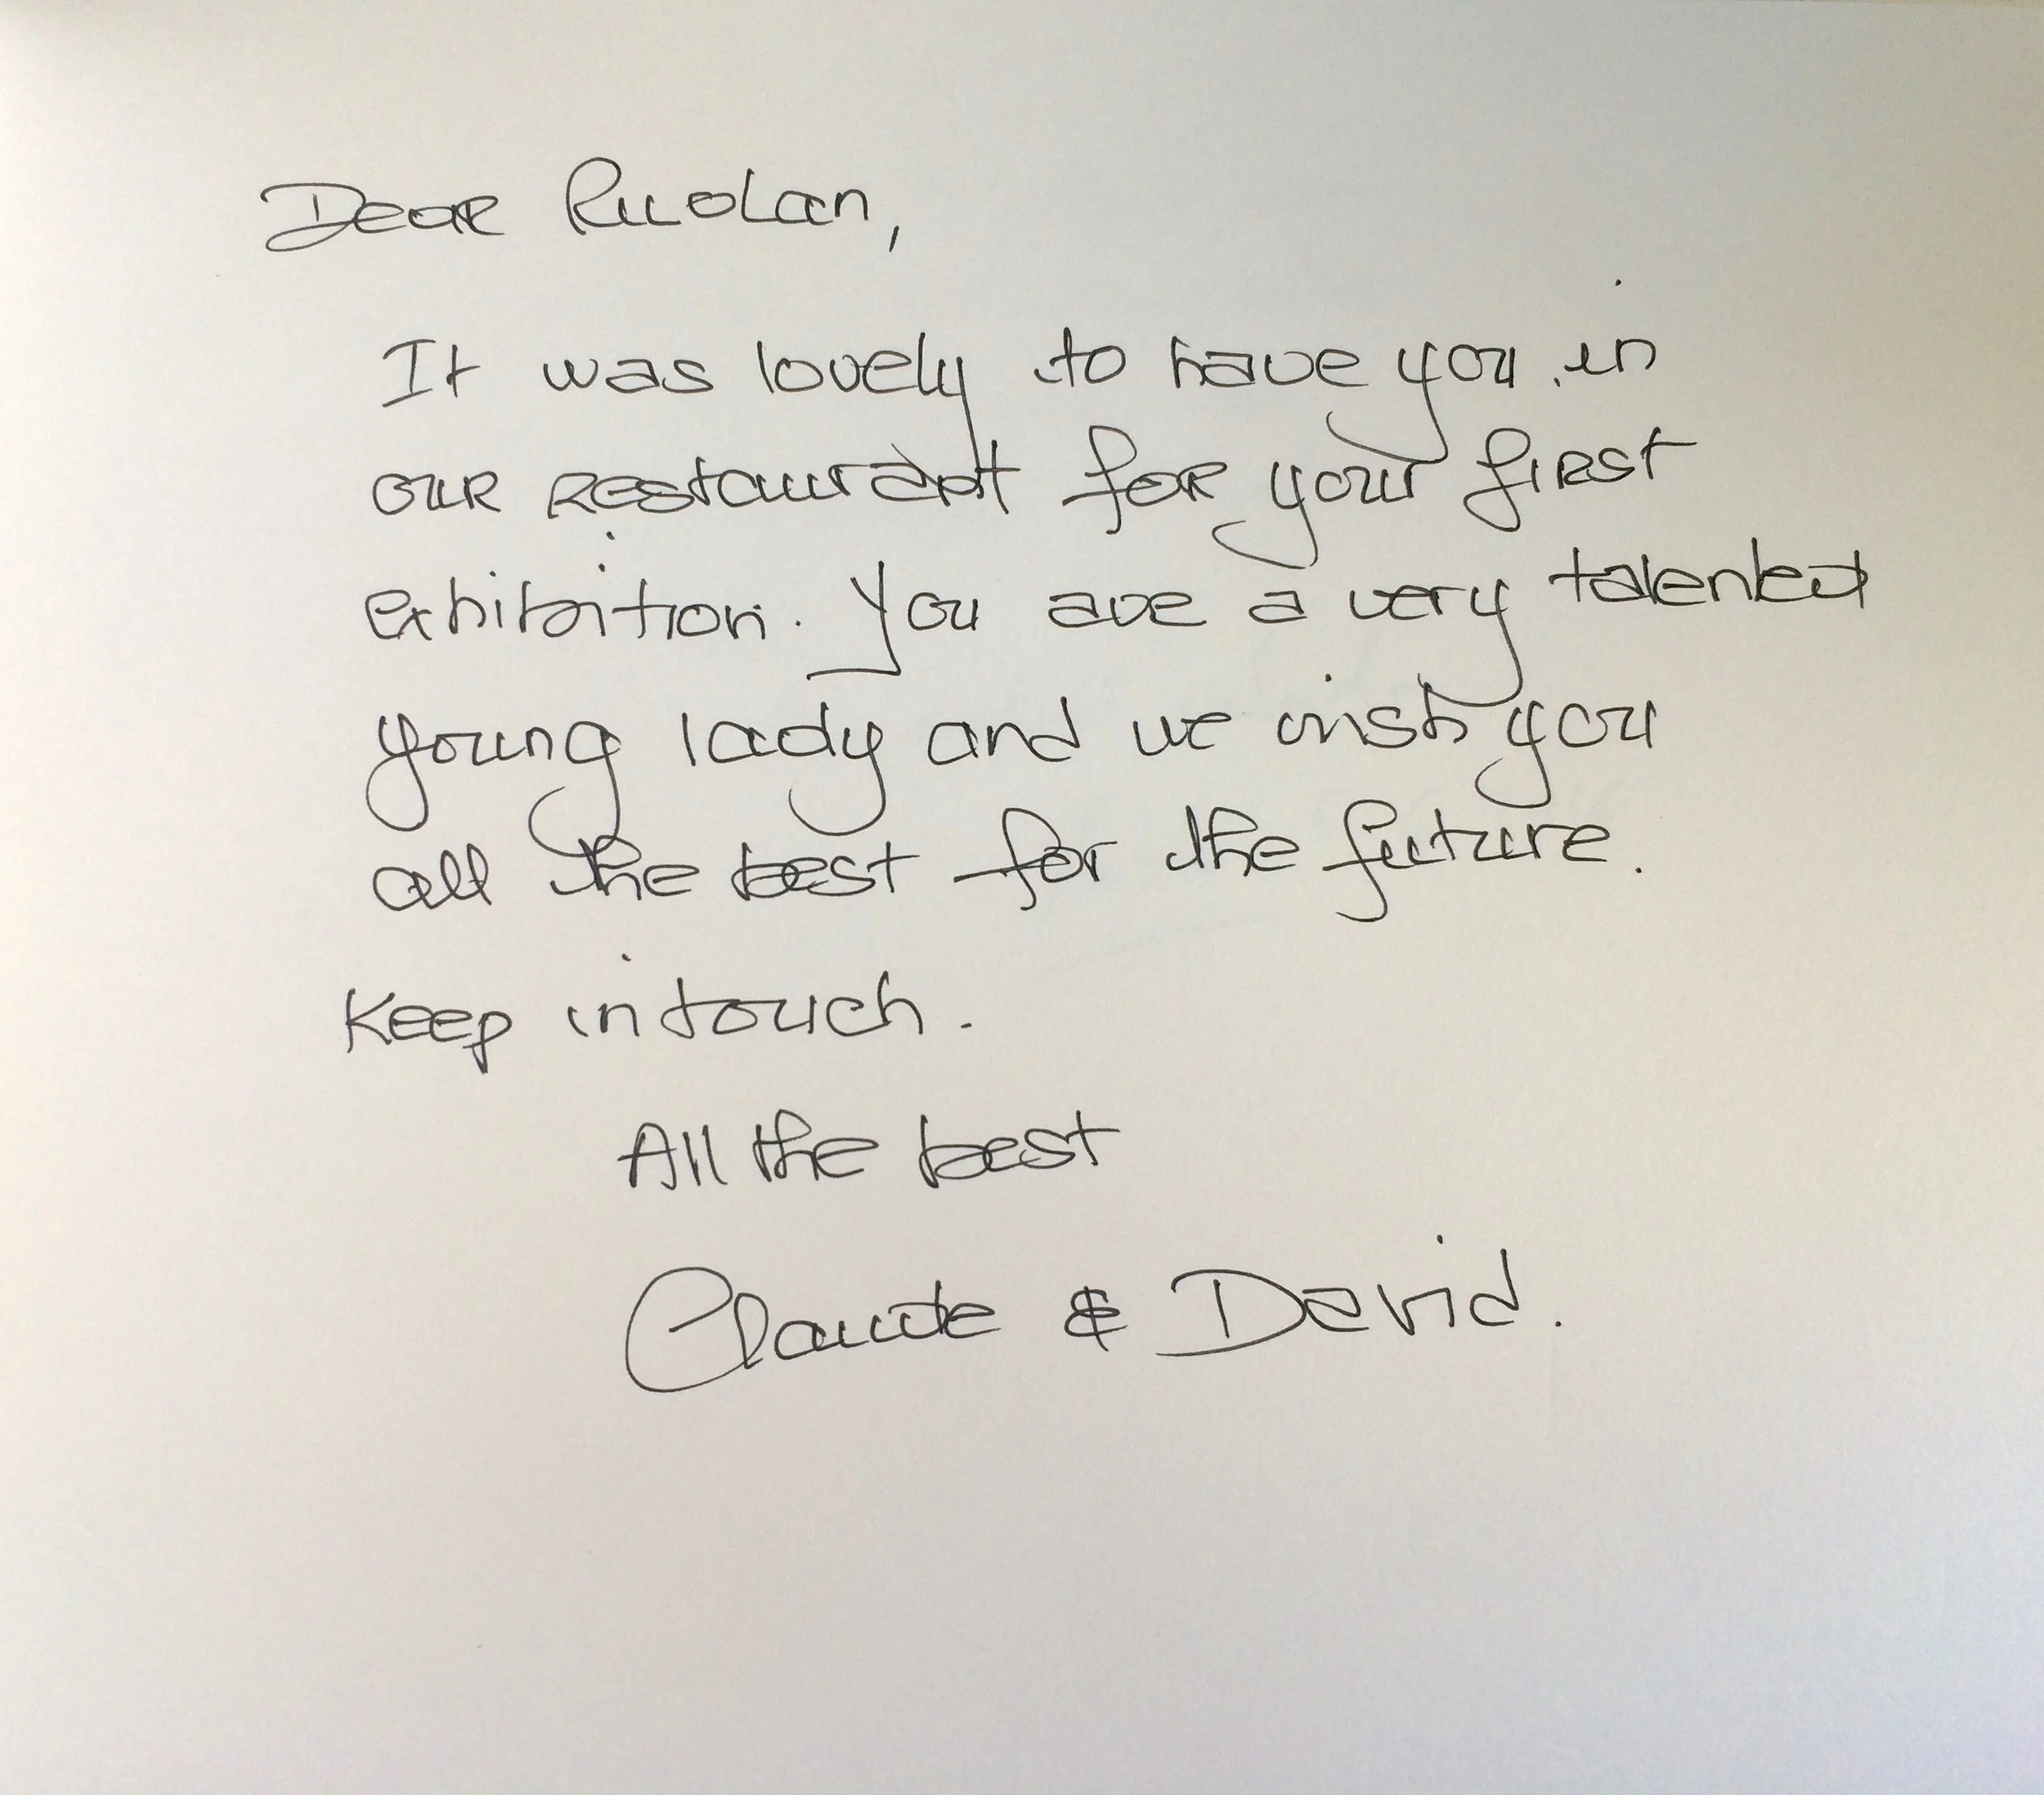 Dear Ruolan,
It was lovely to have you in
our restaurant for your first
exhibition. You are a very talented
young lady and we wish you
all the best for the future.
Keep in touch.
All the best
Claude & David.